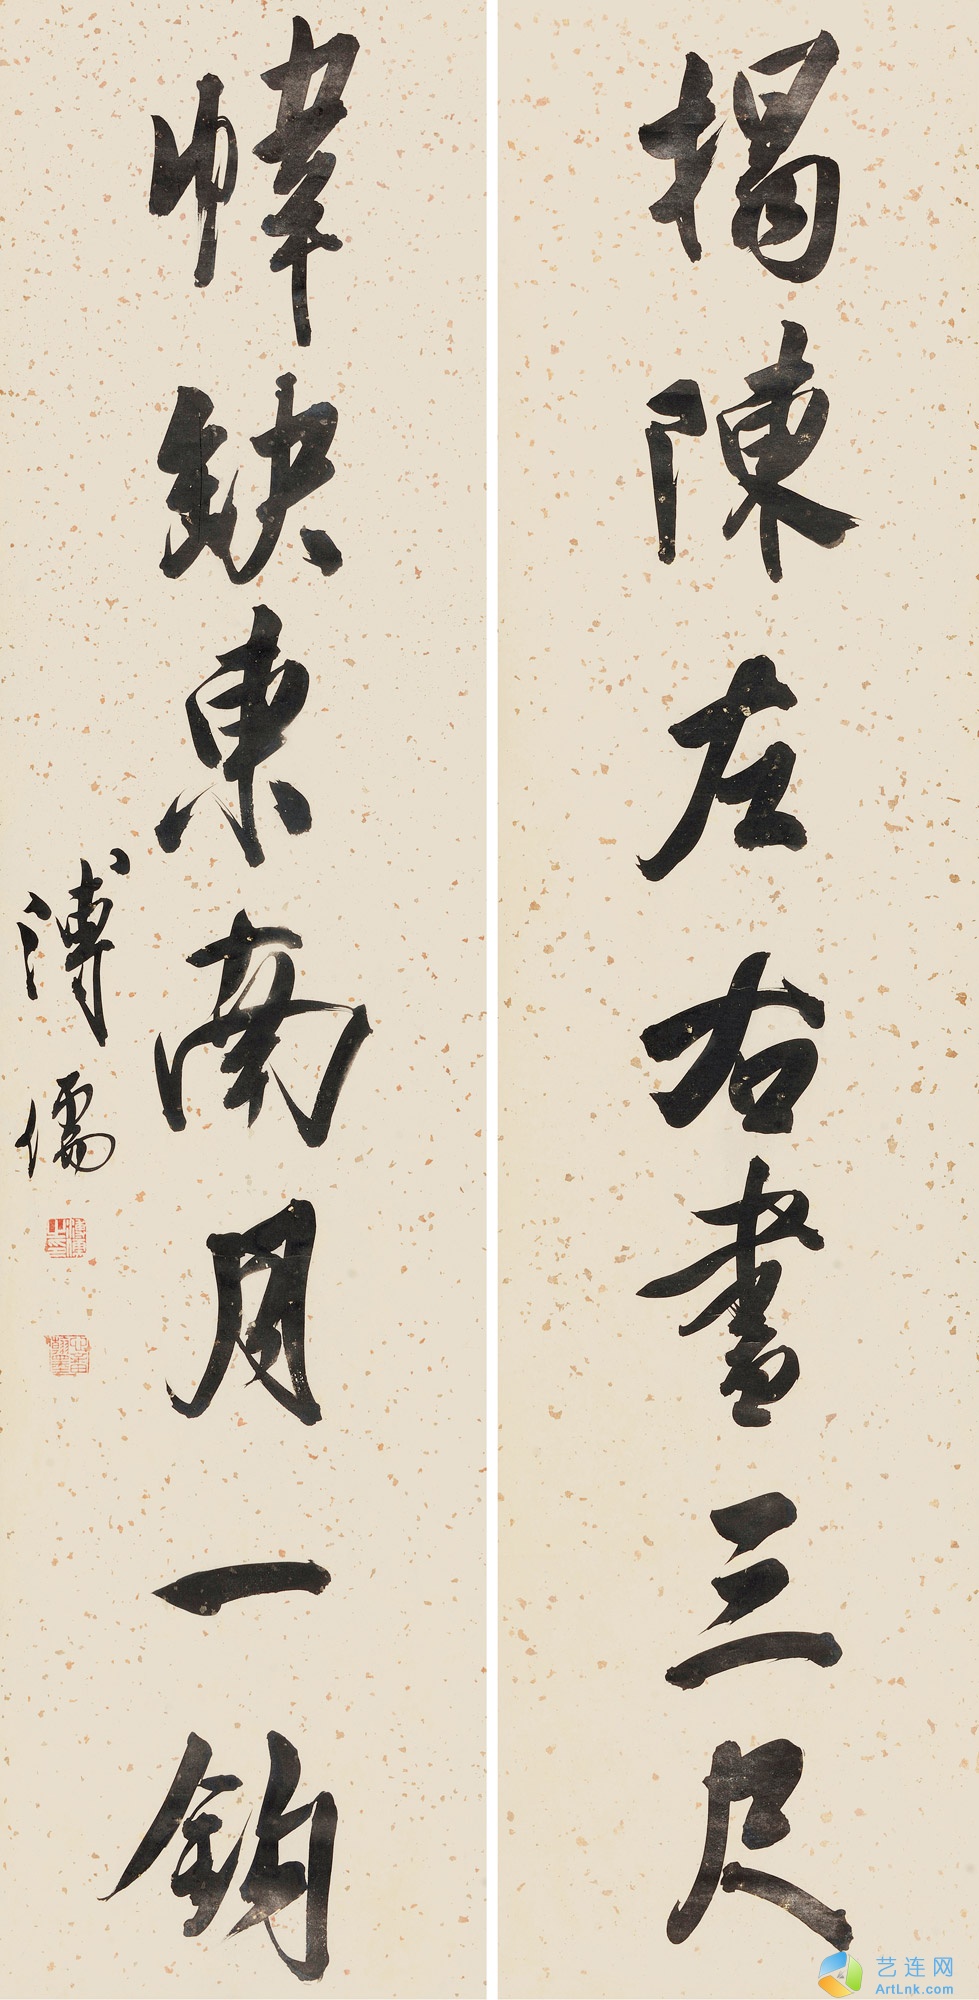 榻陳左右書三尺
幃缺東南月一鉤
溥儒
溥儒之印
艺连网
ArtLnk.com